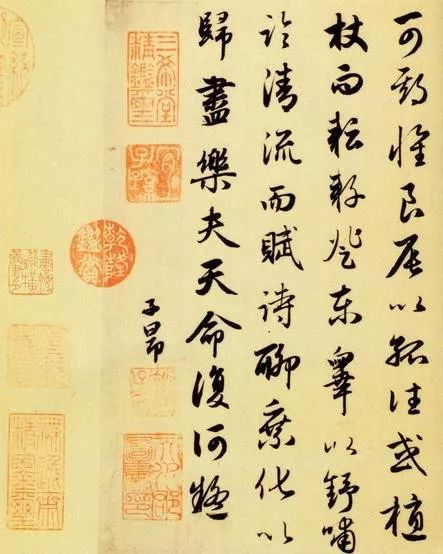 可期惟良辰以孤往或植
杖而耘耔登東皋以舒嘯
臨清流而賦詩聊乘化以
歸盡樂夫天命復何疑
子昂
三希堂精鑑璽
宜子孫
乾隆鑑賞